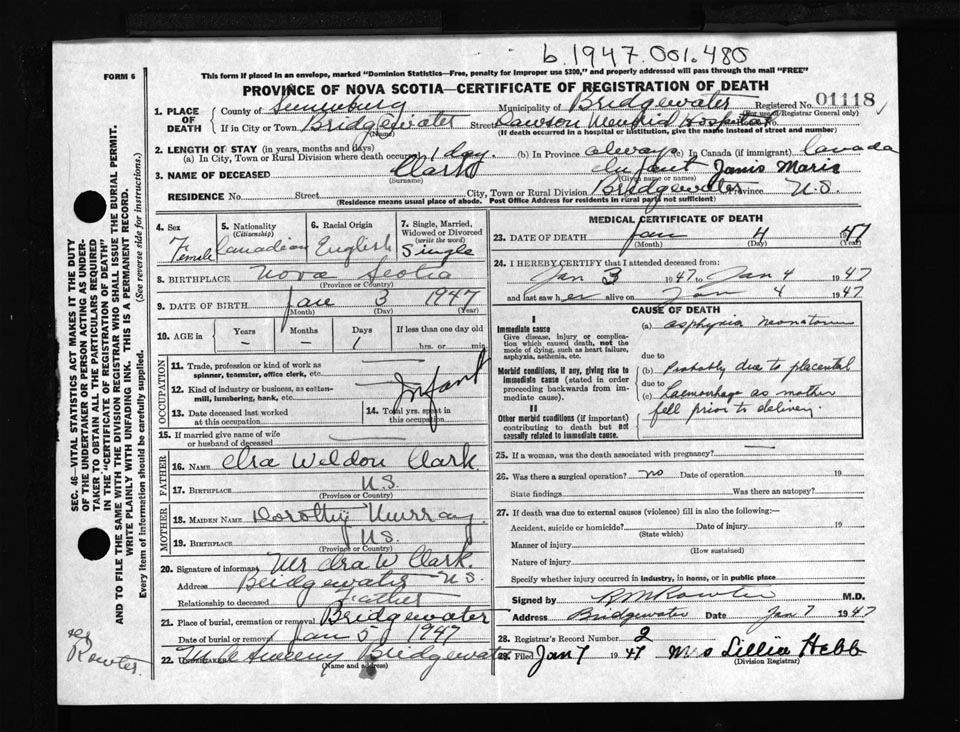 b.1947.001.480
FORM 6
This form if placed in an envelope, marked "Dominion Statistics—Free, penalty for improper use $300," and properly addressed will pass through the mail "FREE"
PROVINCE OF NOVA SCOTIA—CERTIFICATE OF REGISTRATION OF DEATH
1. PLACE OF DEATH County of Lunenburg Municipality of Bridgewater Registered No. 01118
(For use of Registrar General only)
If in City or Town Bridgewater Street Dawson Memorial Hospital
(Name) (If death occurred in a hospital or institution, give the name instead of street and number)
2. LENGTH OF STAY (in years, months and days)
(a) In City, Town or Rural Division where death occurred 1 day. (b) In Province always (c) In Canada (if immigrant) Canada
3. NAME OF DECEASED Clark Infant Janis Marie
(Surname) (Given name or names)
RESIDENCE No. Street City, Town or Rural Division Bridgewater Province N.S.
(Residence means usual place of abode. Post Office Address for residents in rural parts not sufficient)
4. Sex Female
5. Nationality (Citizenship) Canadian
6. Racial Origin English
7. Single, Married, Widowed or Divorced (write the word) Single
8. BIRTHPLACE Nova Scotia
(Province or Country)
9. DATE OF BIRTH Jan 3 1947
(Month) (Day) (Year)
10. AGE in Years Months Days If less than one day old
– – 1 hrs. or min.
OCCUPATION
11. Trade, profession or kind of work as spinner, teamster, office clerk, etc.
12. Kind of industry or business, as cotton-mill, lumbering, bank, etc. Infant
13. Date deceased last worked at this occupation
14. Total yrs. spent in this occupation
15. If married give name of wife or husband of deceased
FATHER
16. NAME Ira Weldon Clark.
17. BIRTHPLACE N.S.
(Province or Country)
MOTHER
18. MAIDEN NAME Dorothy Murray
19. BIRTHPLACE N.S.
(Province or Country)
20. Signature of informant Mr Ira W Clark.
Address Bridgewater N.S.
Relationship to deceased Father
21. Place of burial, cremation or removal Bridgewater
Date of burial or removal Jan 5 1947
22. UNDERTAKER Bridgewater
(Name and address)
MEDICAL CERTIFICATE OF DEATH
23. DATE OF DEATH Jan 4 1947
(Month) (Day) (Year)
24. I HEREBY CERTIFY that I attended deceased from:
Jan 3 1947 to Jan 4 1947
and last saw her alive on Jan 4 1947
CAUSE OF DEATH
I
Immediate cause
Give disease, injury or complication which caused death, not the mode of dying, such as heart failure, asphyxia, asthenia, etc.
(a) asphyxia neonatorum
due to
Morbid conditions, if any, giving rise to immediate cause (stated in order proceeding backwards from immediate cause).
(b) Probably due to placental
due to
(c) Haemorrhage as mother
fell prior to delivery.
II
Other morbid conditions (if important) contributing to death but not causally related to immediate cause.
25. If a woman, was the death associated with pregnancy?
26. Was there a surgical operation? no Date of operation 19
State findings Was there an autopsy?
27. If death was due to external causes (violence) fill in also the following:—
Accident, suicide or homicide? Date of injury 19
(State which)
Manner of injury
(How sustained)
Nature of injury
Specify whether injury occurred in industry, in home, or in public place
Signed by M.D.
Address Bridgewater Date Jan 7 1947
28. Registrar's Record Number 2
29. Filed Jan 7 1947 Mrs Lillia Hebb
(Division Registrar)
SEC. 46—VITAL STATISTICS ACT MAKES IT THE DUTY
OF THE UNDERTAKER OR PERSON ACTING AS UNDER-
TAKER TO OBTAIN ALL THE PARTICULARS REQUIRED
IN THE "CERTIFICATE OF REGISTRATION OF DEATH"
AND TO FILE THE SAME WITH THE DIVISION REGISTRAR WHO SHALL ISSUE THE BURIAL PERMIT.
WRITE PLAINLY WITH UNFADING INK. THIS IS A PERMANENT RECORD.
Every item of information should be carefully supplied. (See reverse side for instructions.)
Rowter